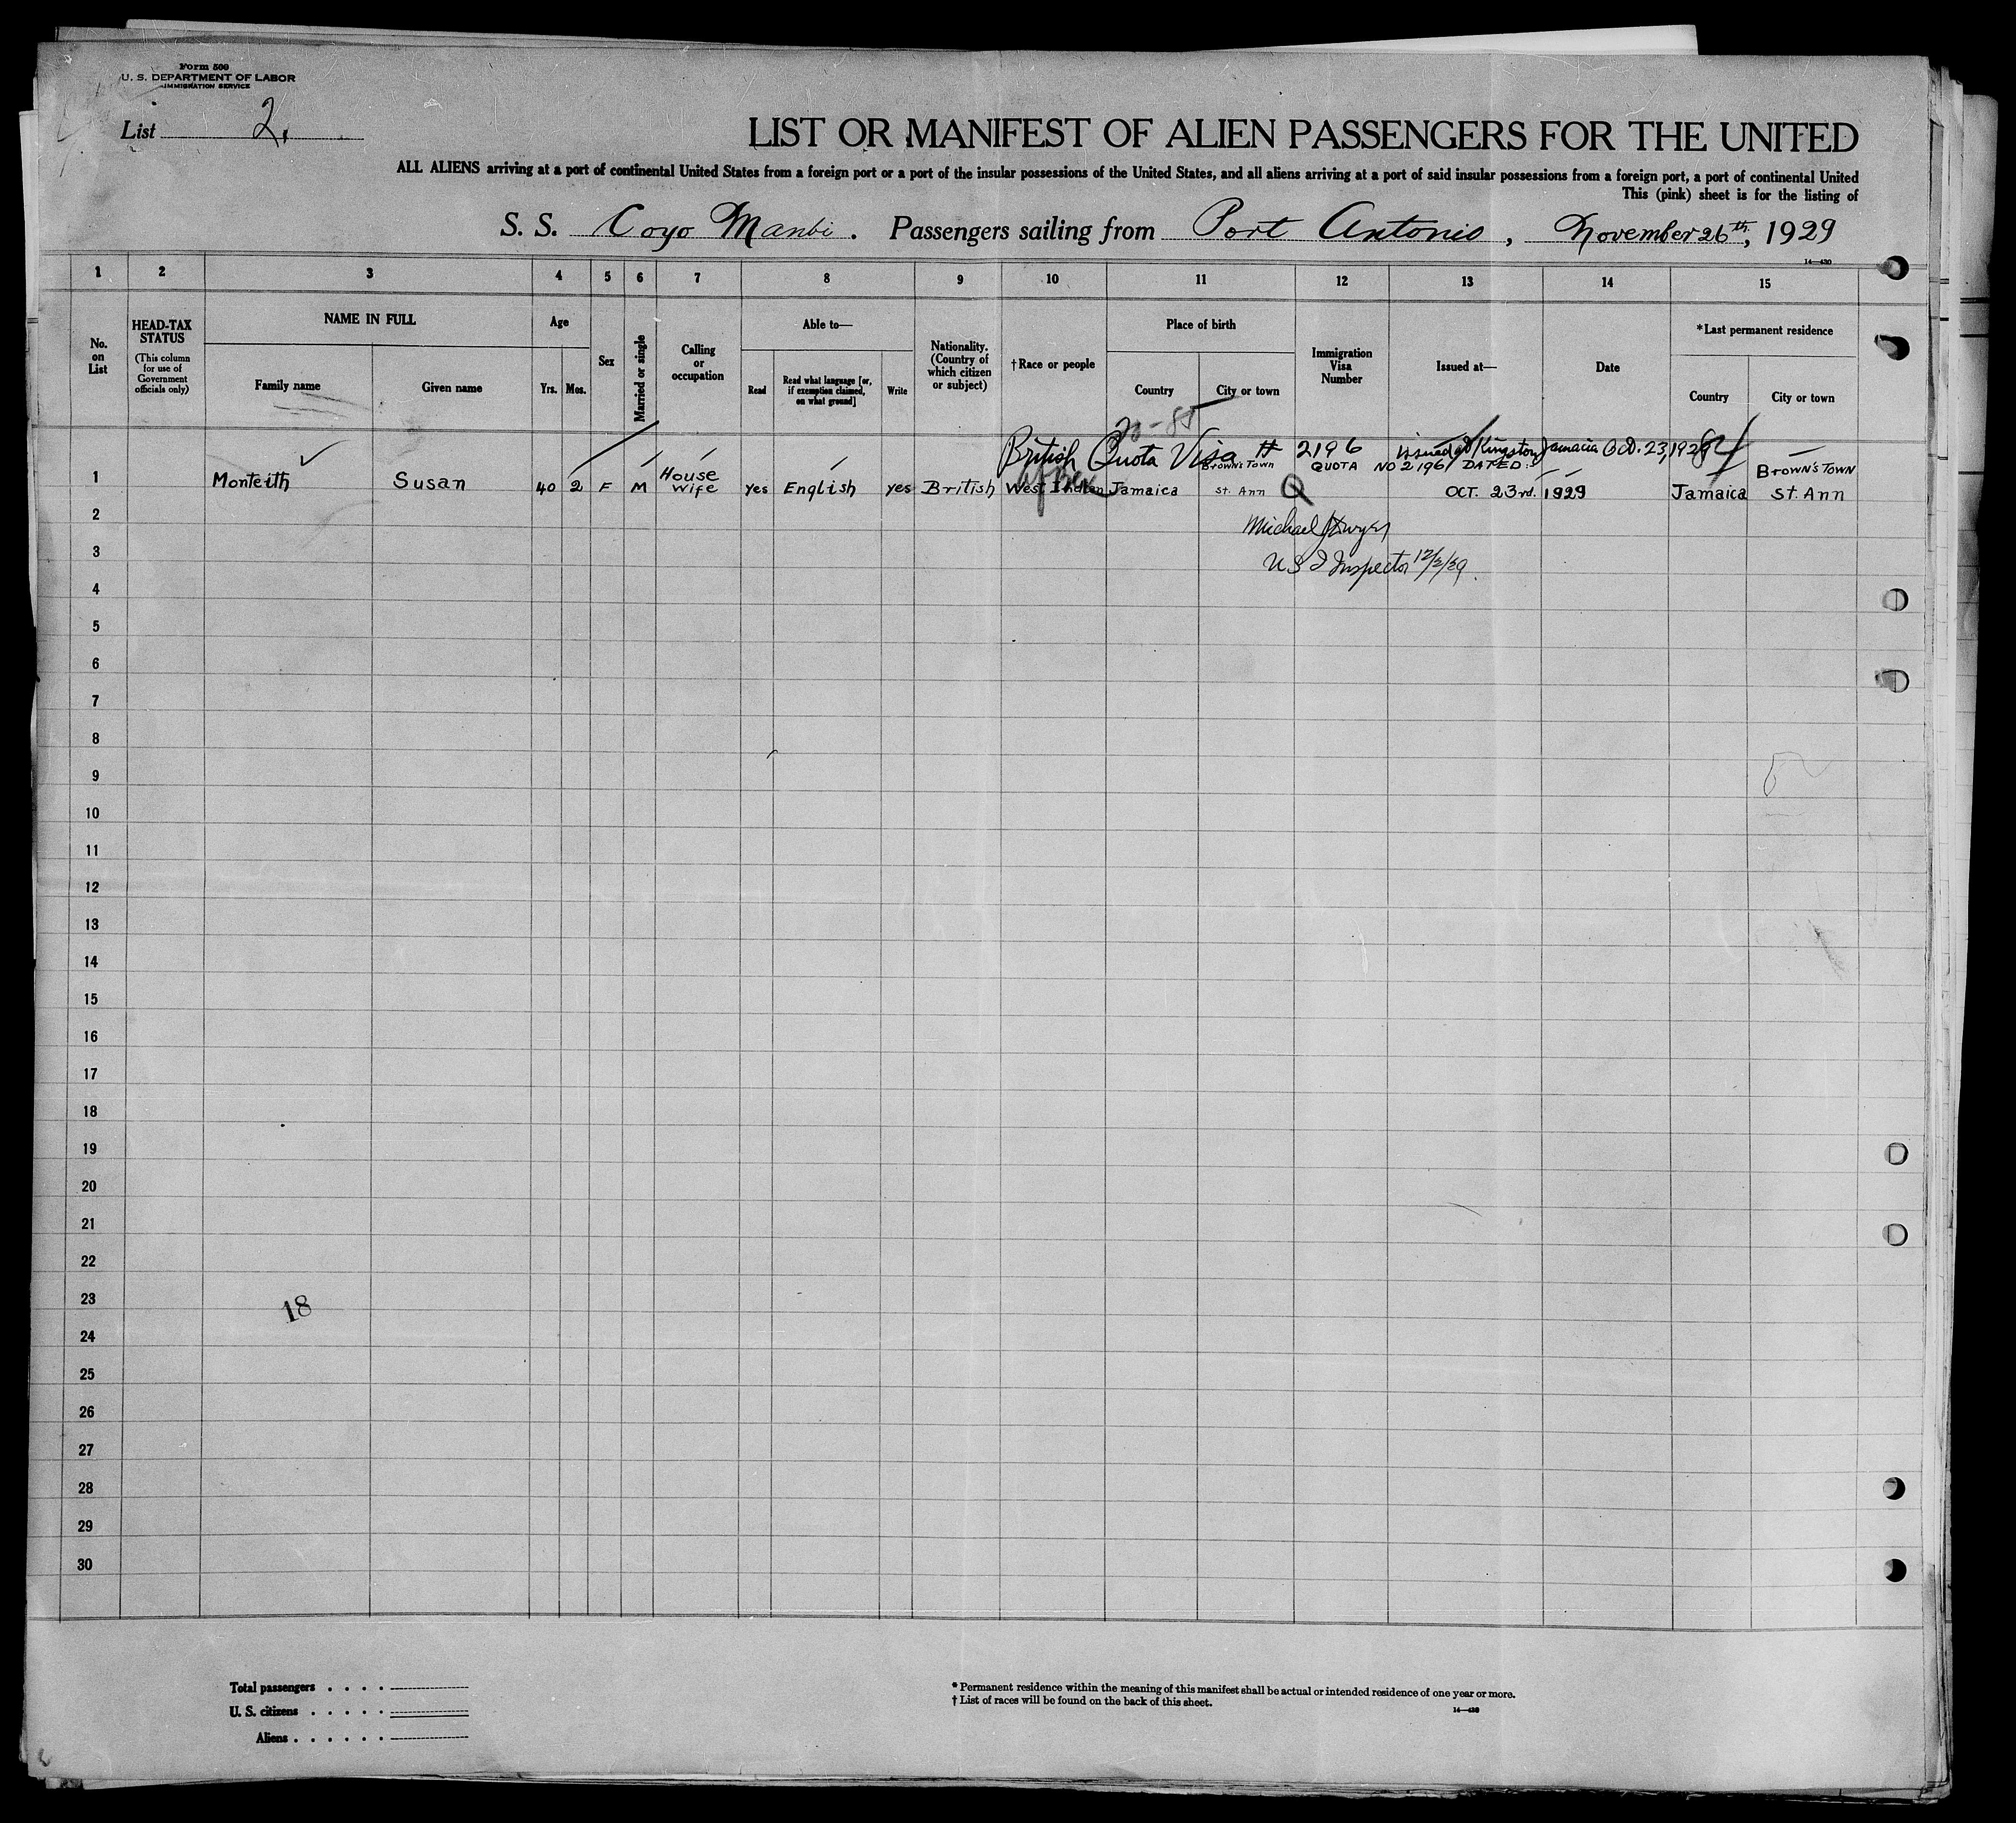 Form 500
U. S. DEPARTMENT OF LABOR
IMMIGRATION SERVICE
List 2.
LIST OR MANIFEST OF ALIEN PASSENGERS FOR THE UNITED
ALL ALIENS arriving at a port of continental United States from a foreign port or a port of the insular possessions of the United States, and all aliens arriving at a port of said insular possessions from a foreign port, a port of continental United
This (pink) sheet is for the listing of
S. S. Coyo Manbi. Passengers sailing from Port Antonio, November 26th, 1929
14—430
1 2 3 4 5 6 7 8 9 10 11 12 13 14 15
No. on List
HEAD-TAX STATUS
(This column for use of Government officials only)
NAME IN FULL
Family name
Given name
Age
Yrs.
Mos.
Sex
Married or single
Calling or occupation
Able to—
Read
Read what language [or, if exemption claimed, on what ground]
Write
Nationality. (Country of which citizen or subject)
†Race or people
Place of birth
Country
City or town
Immigration Visa Number
Issued at—
Date
*Last permanent residence
Country
City or town
British Quota Visa # 2196 issued at Kingston Jamaica Oct. 23, 1929
Brown's Town QUOTA NO 2196 DATED Brown's Town
1 Monteith Susan 40 2 F M House Wife yes English yes British West Indian Jamaica St. Ann Q OCT. 23rd. 1929 Jamaica St. Ann
2
Michael Dwyer
3
U S I Inspector 12/2/29.
4
5
6
7
8
9
10
11
12
13
14
15
16
17
18
19
20
21
22
23
18
24
25
26
27
28
29
30
Total passengers . . . .
U. S. citizens . . . . .
Aliens . . . . . .
* Permanent residence within the meaning of this manifest shall be actual or intended residence of one year or more.
† List of races will be found on the back of this sheet.
14—430